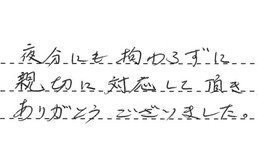 夜分にも拘わらずに
親切に対応して頂き
ありがとうございました。